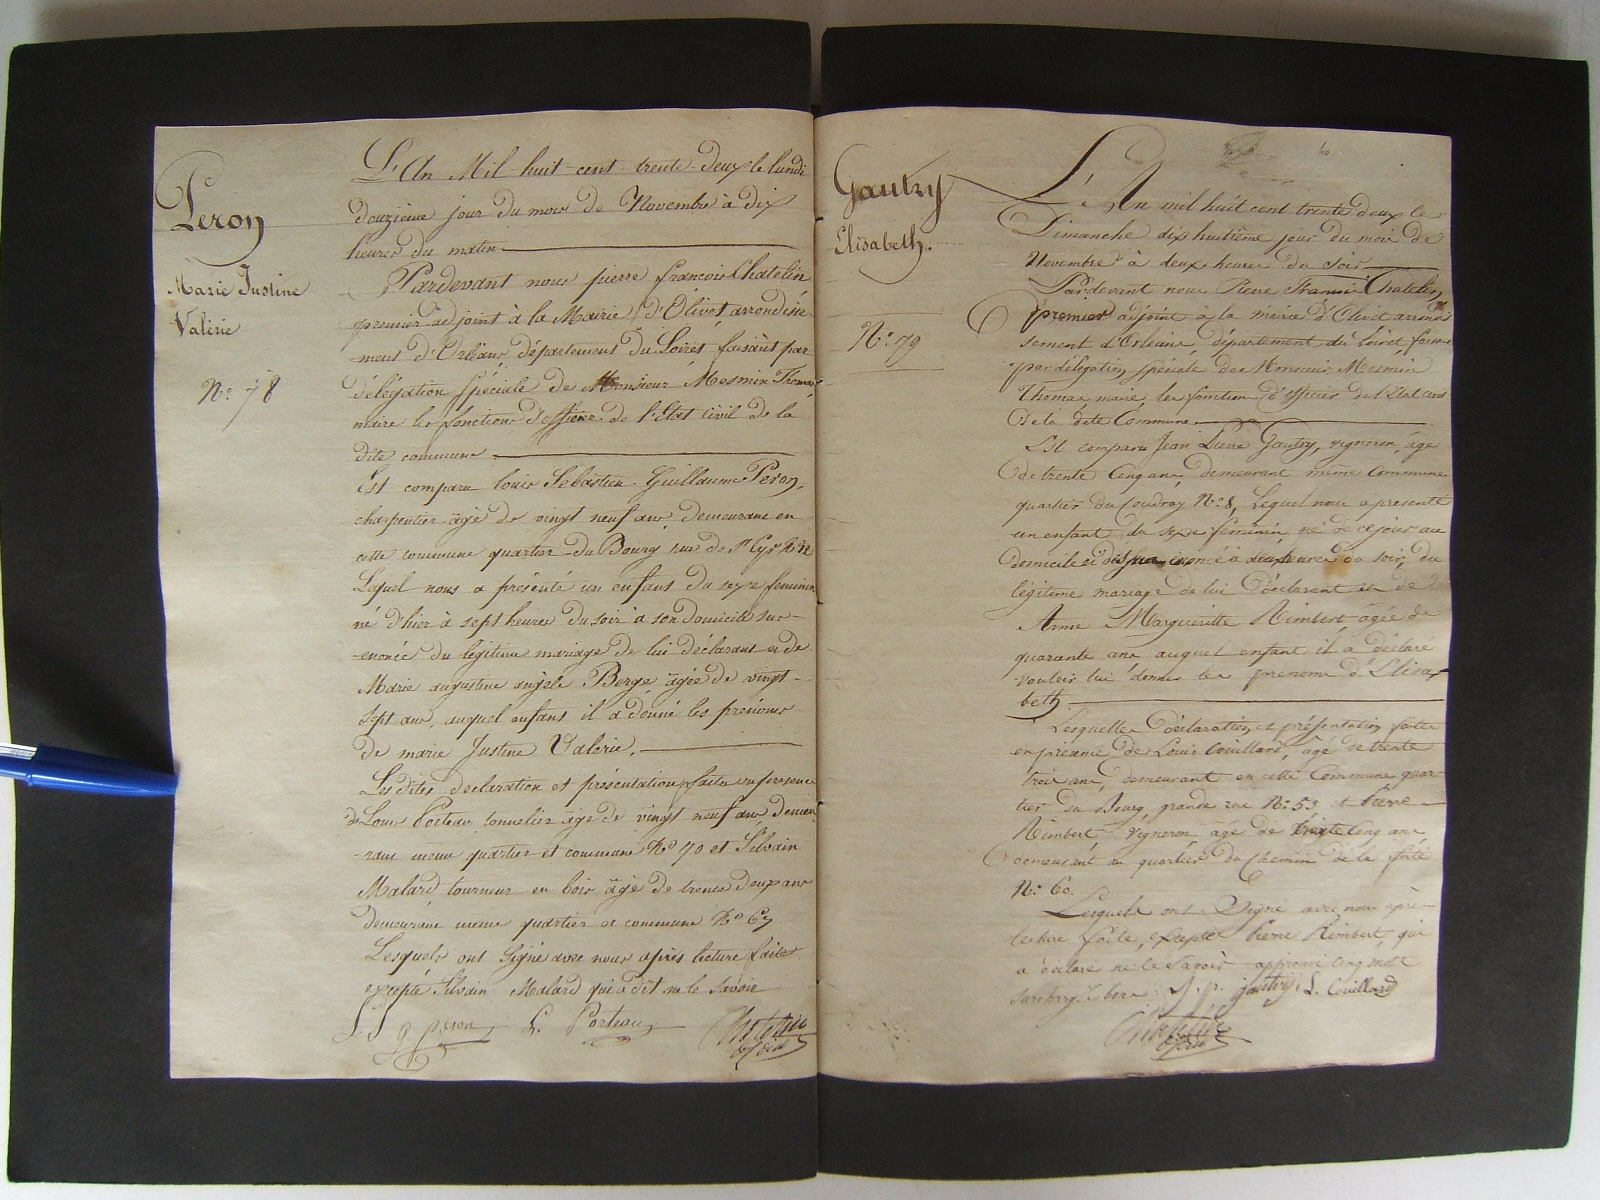 Peron
Marie Justine
Valérie
N.° 78
L'An Mil huit-cent trente-deux le lundi
douzième jour du mois de Novembre à dix
heures du matin
Pardevant nous pierre françois Chatelin
premier adjoint à la Mairie d'Olivet arrondisse-
ment d'Orléans département du Loiret faisant par
délégation spéciale de Monsieur Mesmin Thomas
maire les fonctions d'officier de l'Etat civil de la
dite commune
Est comparu louis Sebastien Guillaume Peron,
charpentier âgé de vingt neuf ans, demeurant en
cette commune quartier du Bourg rue de St Cyr N°
Lequel nous a présenté un enfant du sexe feminin
né d'hier à sept heures du soir à son domicile sus-
-enoncé du légitime mariage de lui déclarant et de
Marie augustine angèle Berge âgée de vingt-
sept ans, auquel enfant il a donné les prénoms
de marie Justine Valerie.
Les dites declaration et présentation faites en presence
de Louis Porteau tonnelier âgé de vingt neuf ans demeu
-rant meme quartier et commune N° 70 et Silvain
Malard tourneur en bois âgé de trente deux ans
demeurant meme quartier et commune N° 67
Lesquels ont Signé avec nous après lecture faite
excepté Silvain Malard qui a dit ne le savoir
peron L. Porteau Chatelin
adjoint
Gautry
Elisabeth.
N.° 79
L'An mil huit cent trente deux le
Dimanche dix huitième jour du mois de
Novembre à deux heures du Soir
Par devant nous Pierre François Chatelin,
premier adjoint à la mairie d'Olivet arrondis
sement d'Orléans, département du Loiret faisant
par délégation spéciale de Monsieur Mesmin
Thomas, maire, les fonctions d'officier de l'Etat civil
de la dite Commune
Est comparu Jean Pierre Gautry, vigneron, âgé
de trente cinq ans, demeurant même Commune
quartier du Coudray N.° 8, Lequel nous a présenté
un enfant du sexe féminin, né de ce jour au
domicile ci dessus énoncé à deux heures du soir, du
légitime mariage de lui Déclarant et de
Anne Margueritte Rimbert agée de
quarante ans auquel enfant il a déclaré
vouloir lui donner les prenoms d'Elisa-
beth
Lesquelles déclaration et présentation faites
en présence de Louis Couillard, âgé de trente
trois ans, demeurant en cette Commune quar-
tier du Bourg, grande rue N.° 53 et Pierre
Rimbert, vigneron, âgé de trente cinq ans,
demeurant au quartier du Chemin de la ferté
N.° 60.
Lesquels ont Signé avec nous après
lecture faite, excepté Pierre Rimbert, qui
a déclaré ne le Savoir approuvé cinq mots
surchargés bons J. p. gautry L. Couillard
Chatelin
adjoint